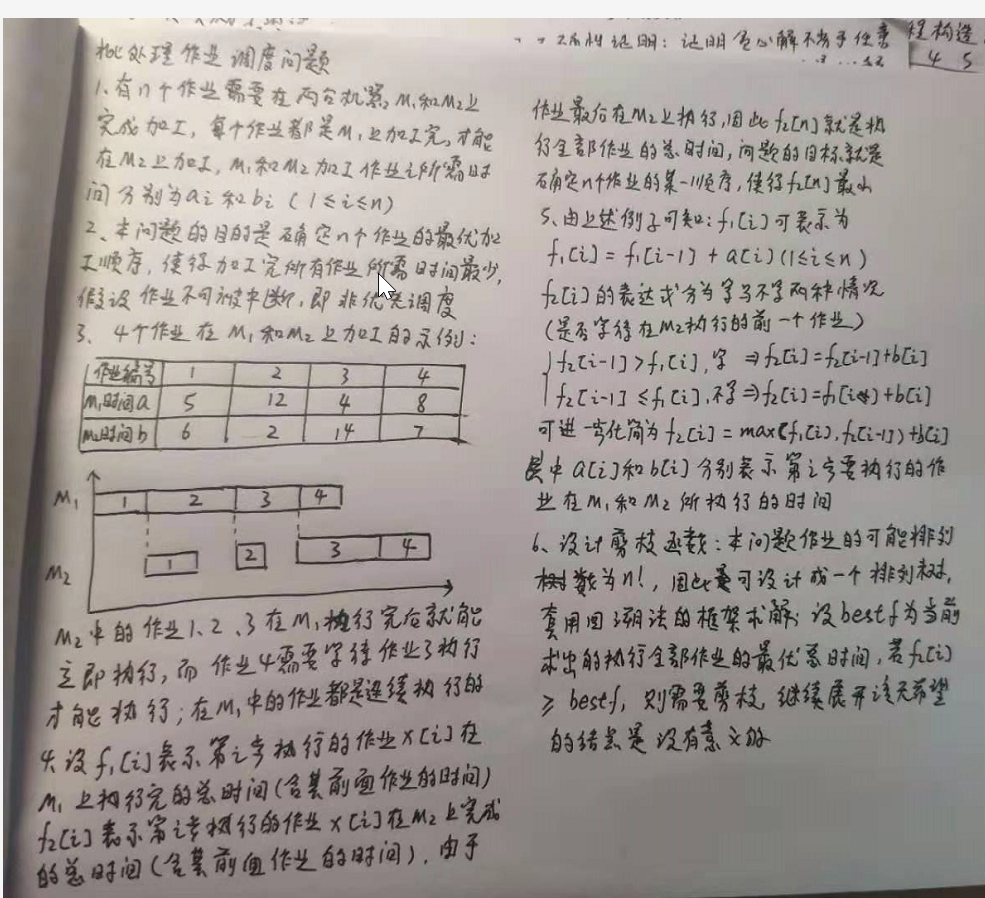 批处理作业调度问题
1、有n个作业需要在两台机器M₁和M₂上
完成加工，每个作业都是M₁上加工完，才能
在M₂上加工，M₁和M₂加工作业i所需时
间分别为ai和bi（1≤i≤n）
2、本问题的目的是确定n个作业的最优加
工顺序，使得加工完所有作业所需时间最少，
假设作业不可被中断，即非优先调度
3、4个作业在M₁和M₂上加工的示例：
作业编号 1 2 3 4
M₁时间a 5 12 4 8
M₂时间b 6 2 14 7
M₁ 1 2 3 4
M₂ 1 2 3 4
M₂中的作业1、2、3在M₁执行完后就能
立即执行，而作业4需要等待作业3执行
才能执行；在M₁中的作业都是连续执行的
4、设f₁[i]表示第i步执行的作业x[i]在
M₁上执行完的总时间（含其前面作业的时间）
f₂[i]表示第i步执行的作业x[i]在M₂上完成
的总时间（含其前面作业的时间），由于
证明：证明贪心解不劣于任意
程构造
4 5
作业最后在M₂上执行，因此f₂[n]就是执
行全部作业的总时间，问题的目标就是
确定n个作业的某一顺序，使得f₂[n]最小
5、由上述例子可知：f₁[i]可表示为
f₁[i] = f₁[i-1] + a[i] (1≤i≤n)
f₂[i]的表达式分为等与不等两种情况
（是否等待在M₂执行的前一个作业）
f₂[i-1] > f₁[i]，等 ⇒ f₂[i] = f₂[i-1]+b[i]
f₂[i-1] ≤ f₁[i]，不等 ⇒ f₂[i] = f₁[i]+b[i]
可进一步化简为 f₂[i] = max(f₁[i], f₂[i-1])+b[i]
其中a[i]和b[i]分别表示第i步要执行的作
业在M₁和M₂所执行的时间
6、设计剪枝函数：本问题作业的可能排列
数为n!，因此可设计成一个排列树，
套用回溯法的框架求解，设bestf为当前
求出的执行全部作业的最优总时间，若f₂[i]
≥ bestf，则需要剪枝，继续展开该无希望
的结点是没有意义的